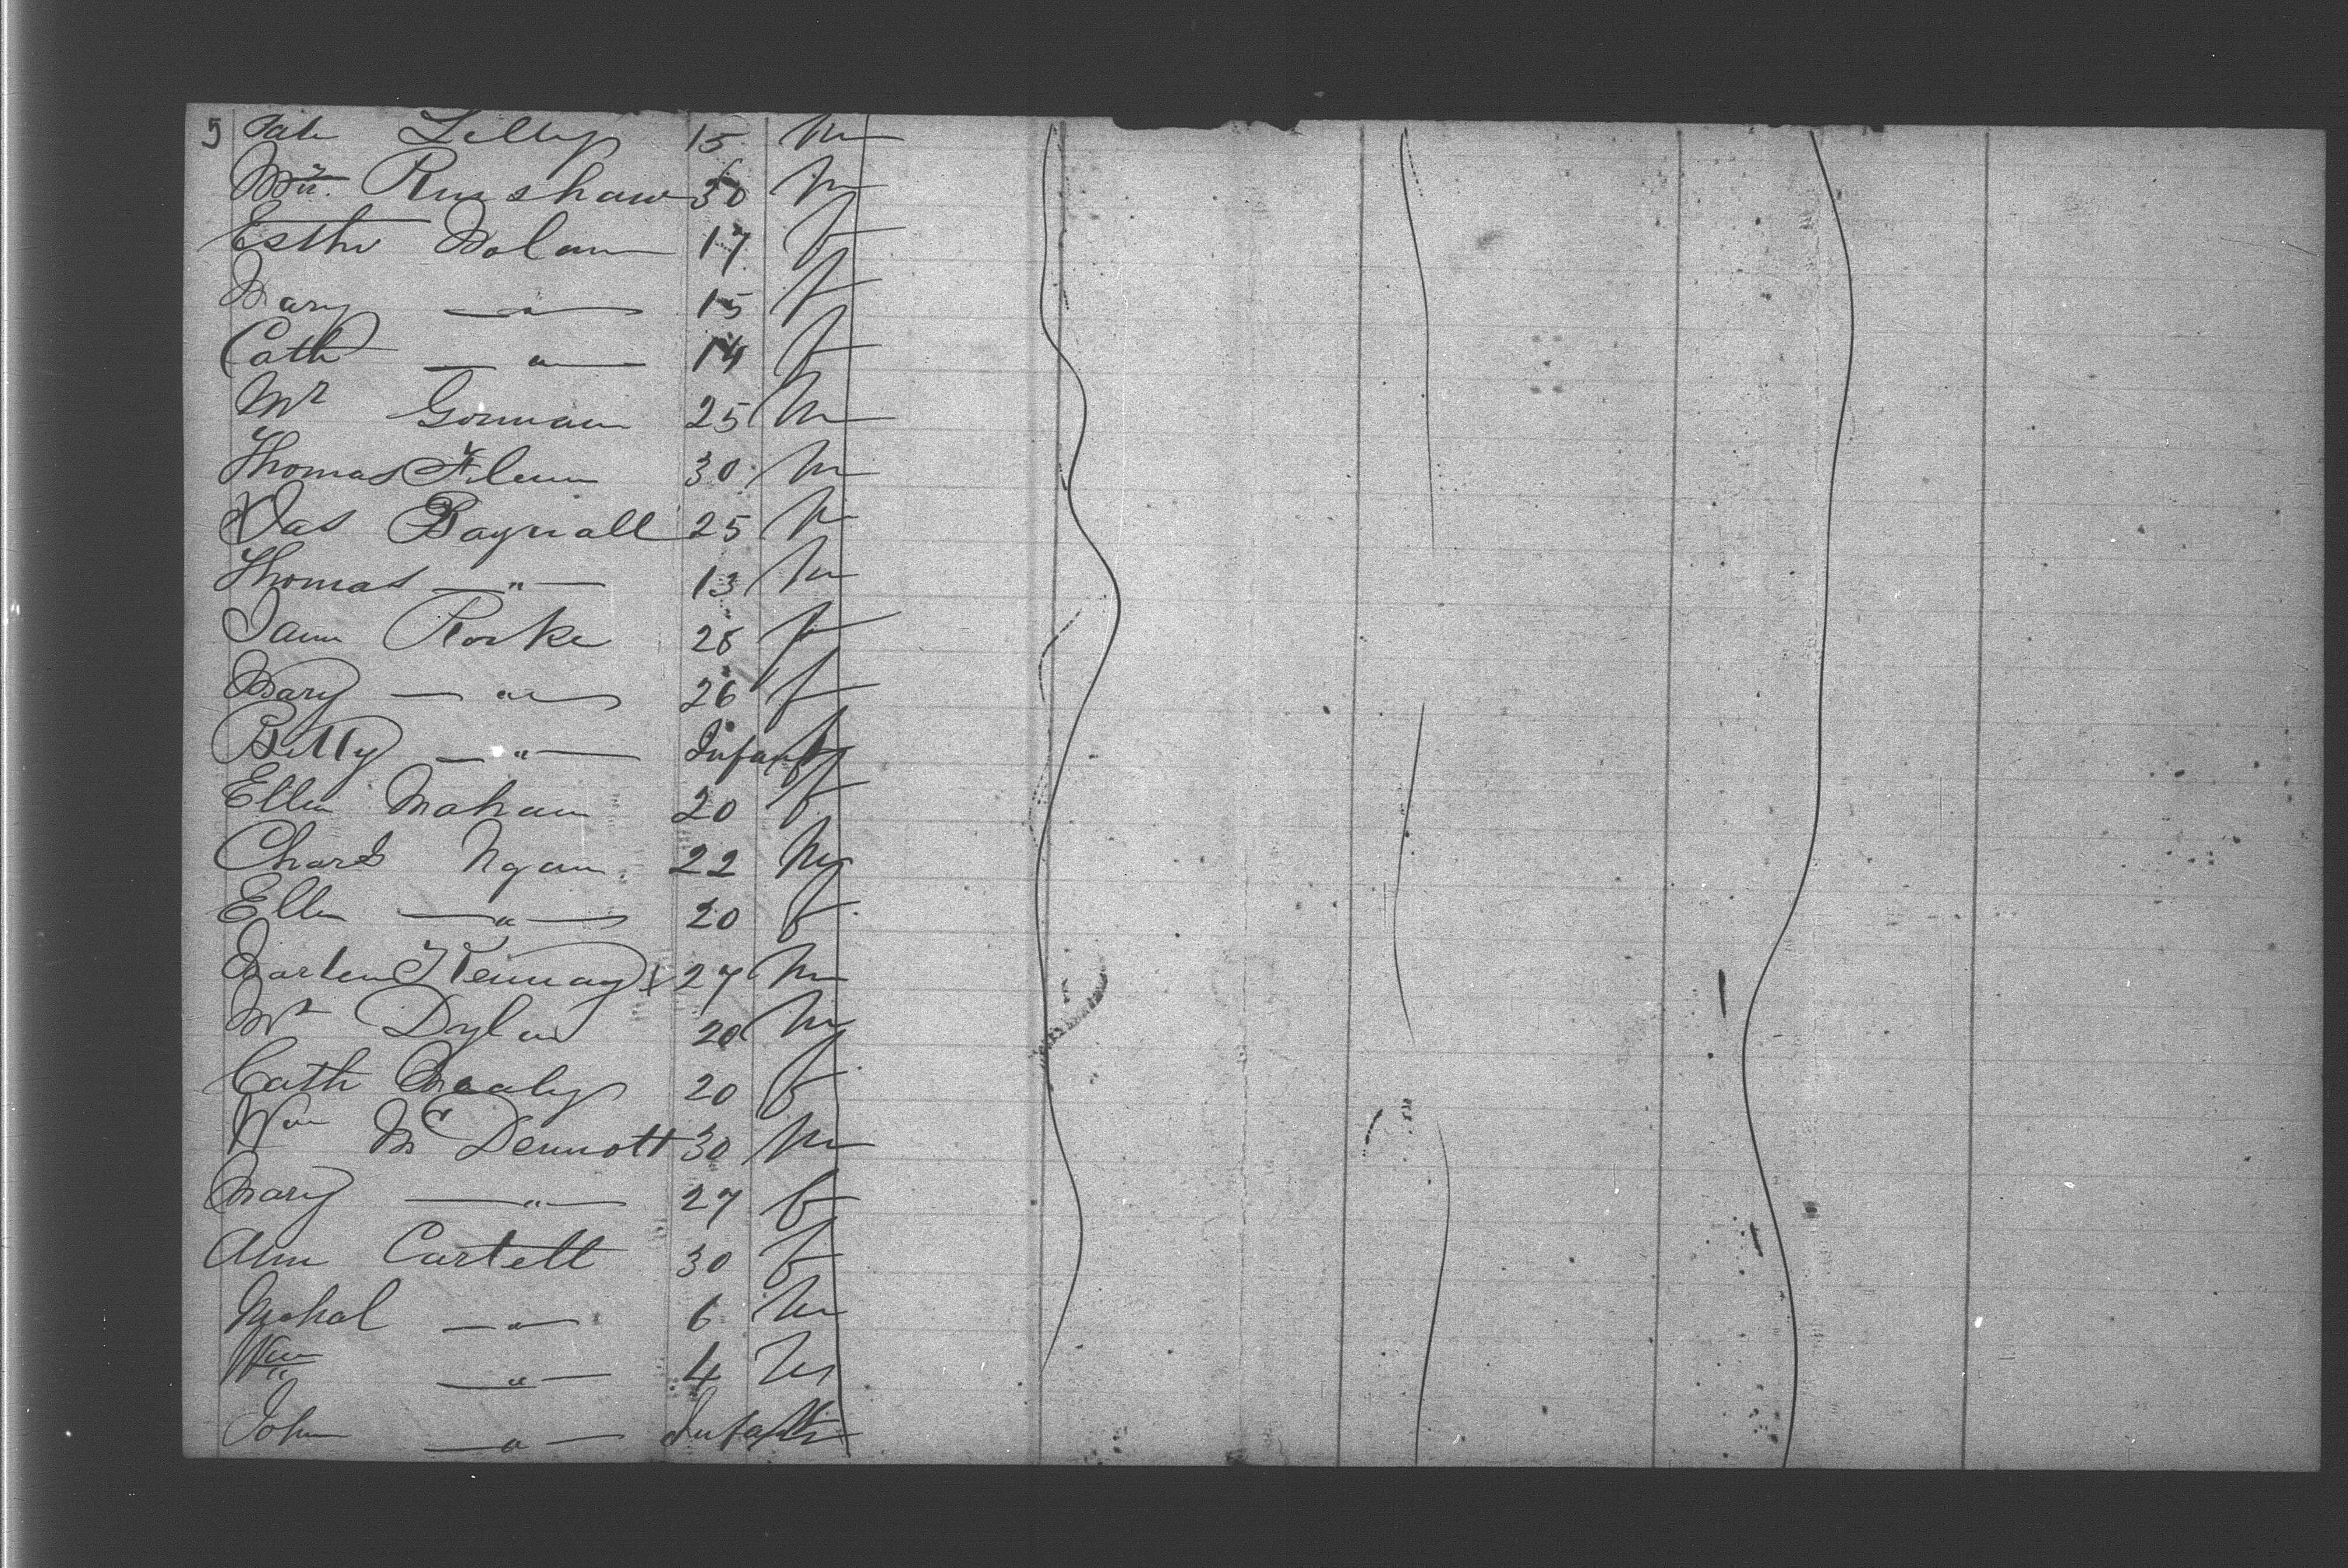 5 Pat Lilly 15 m
Wm. Runshaw 30 m
Esthr Nolan 17 f
Mary — " — 15 f
Cath — " — 14 f
Mr Gorman 25 m
Thomas 30 m
Jas Bagnall 25 m
Thomas — " — 13 m
Jann Rorke 28 f
Mary — " — 26 f
Betty — " — Infant f
Ellen Mahan 20 f
Chars 22 m
Ellen — " — 20 f
Marten 27 m
Mr 20 m
Cath Mealy 20 f
Wm McDermott 30 m
Mary — " — 27 f
Ann Cartell 30 f
Michal — " — 6 m
Wm — " — 4 m
John — " — Infant m